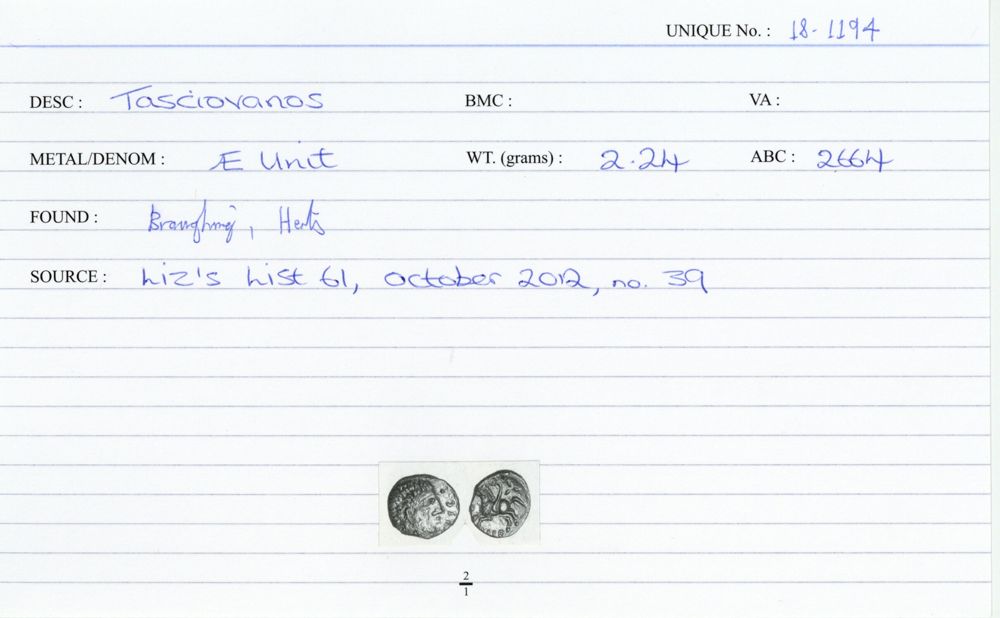 UNIQUE No. : 18-1194
DESC : Tasciovanos BMC : VA :
METAL/DENOM : Æ Unit WT. (grams) : 2.24 ABC : 2664
FOUND : Braughing, Herts
SOURCE : Liz's List 61, October 2012, no. 39
2
1